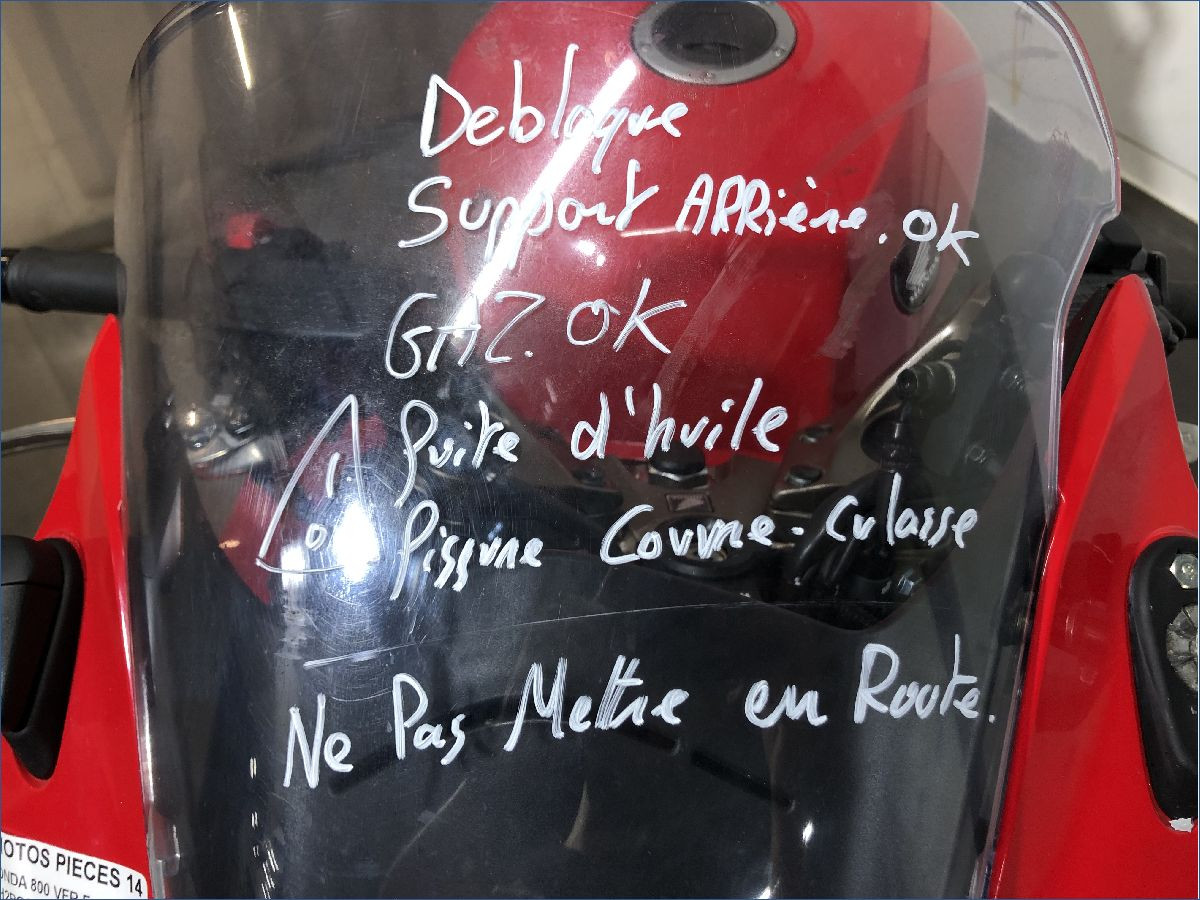 Debloque
Support ARRière. OK
GAZ. OK
fuite d'huile
fissure Couvre-culasse
Ne Pas Mettre en Route.
MOTOS PIECES 14
HONDA 800 VFR